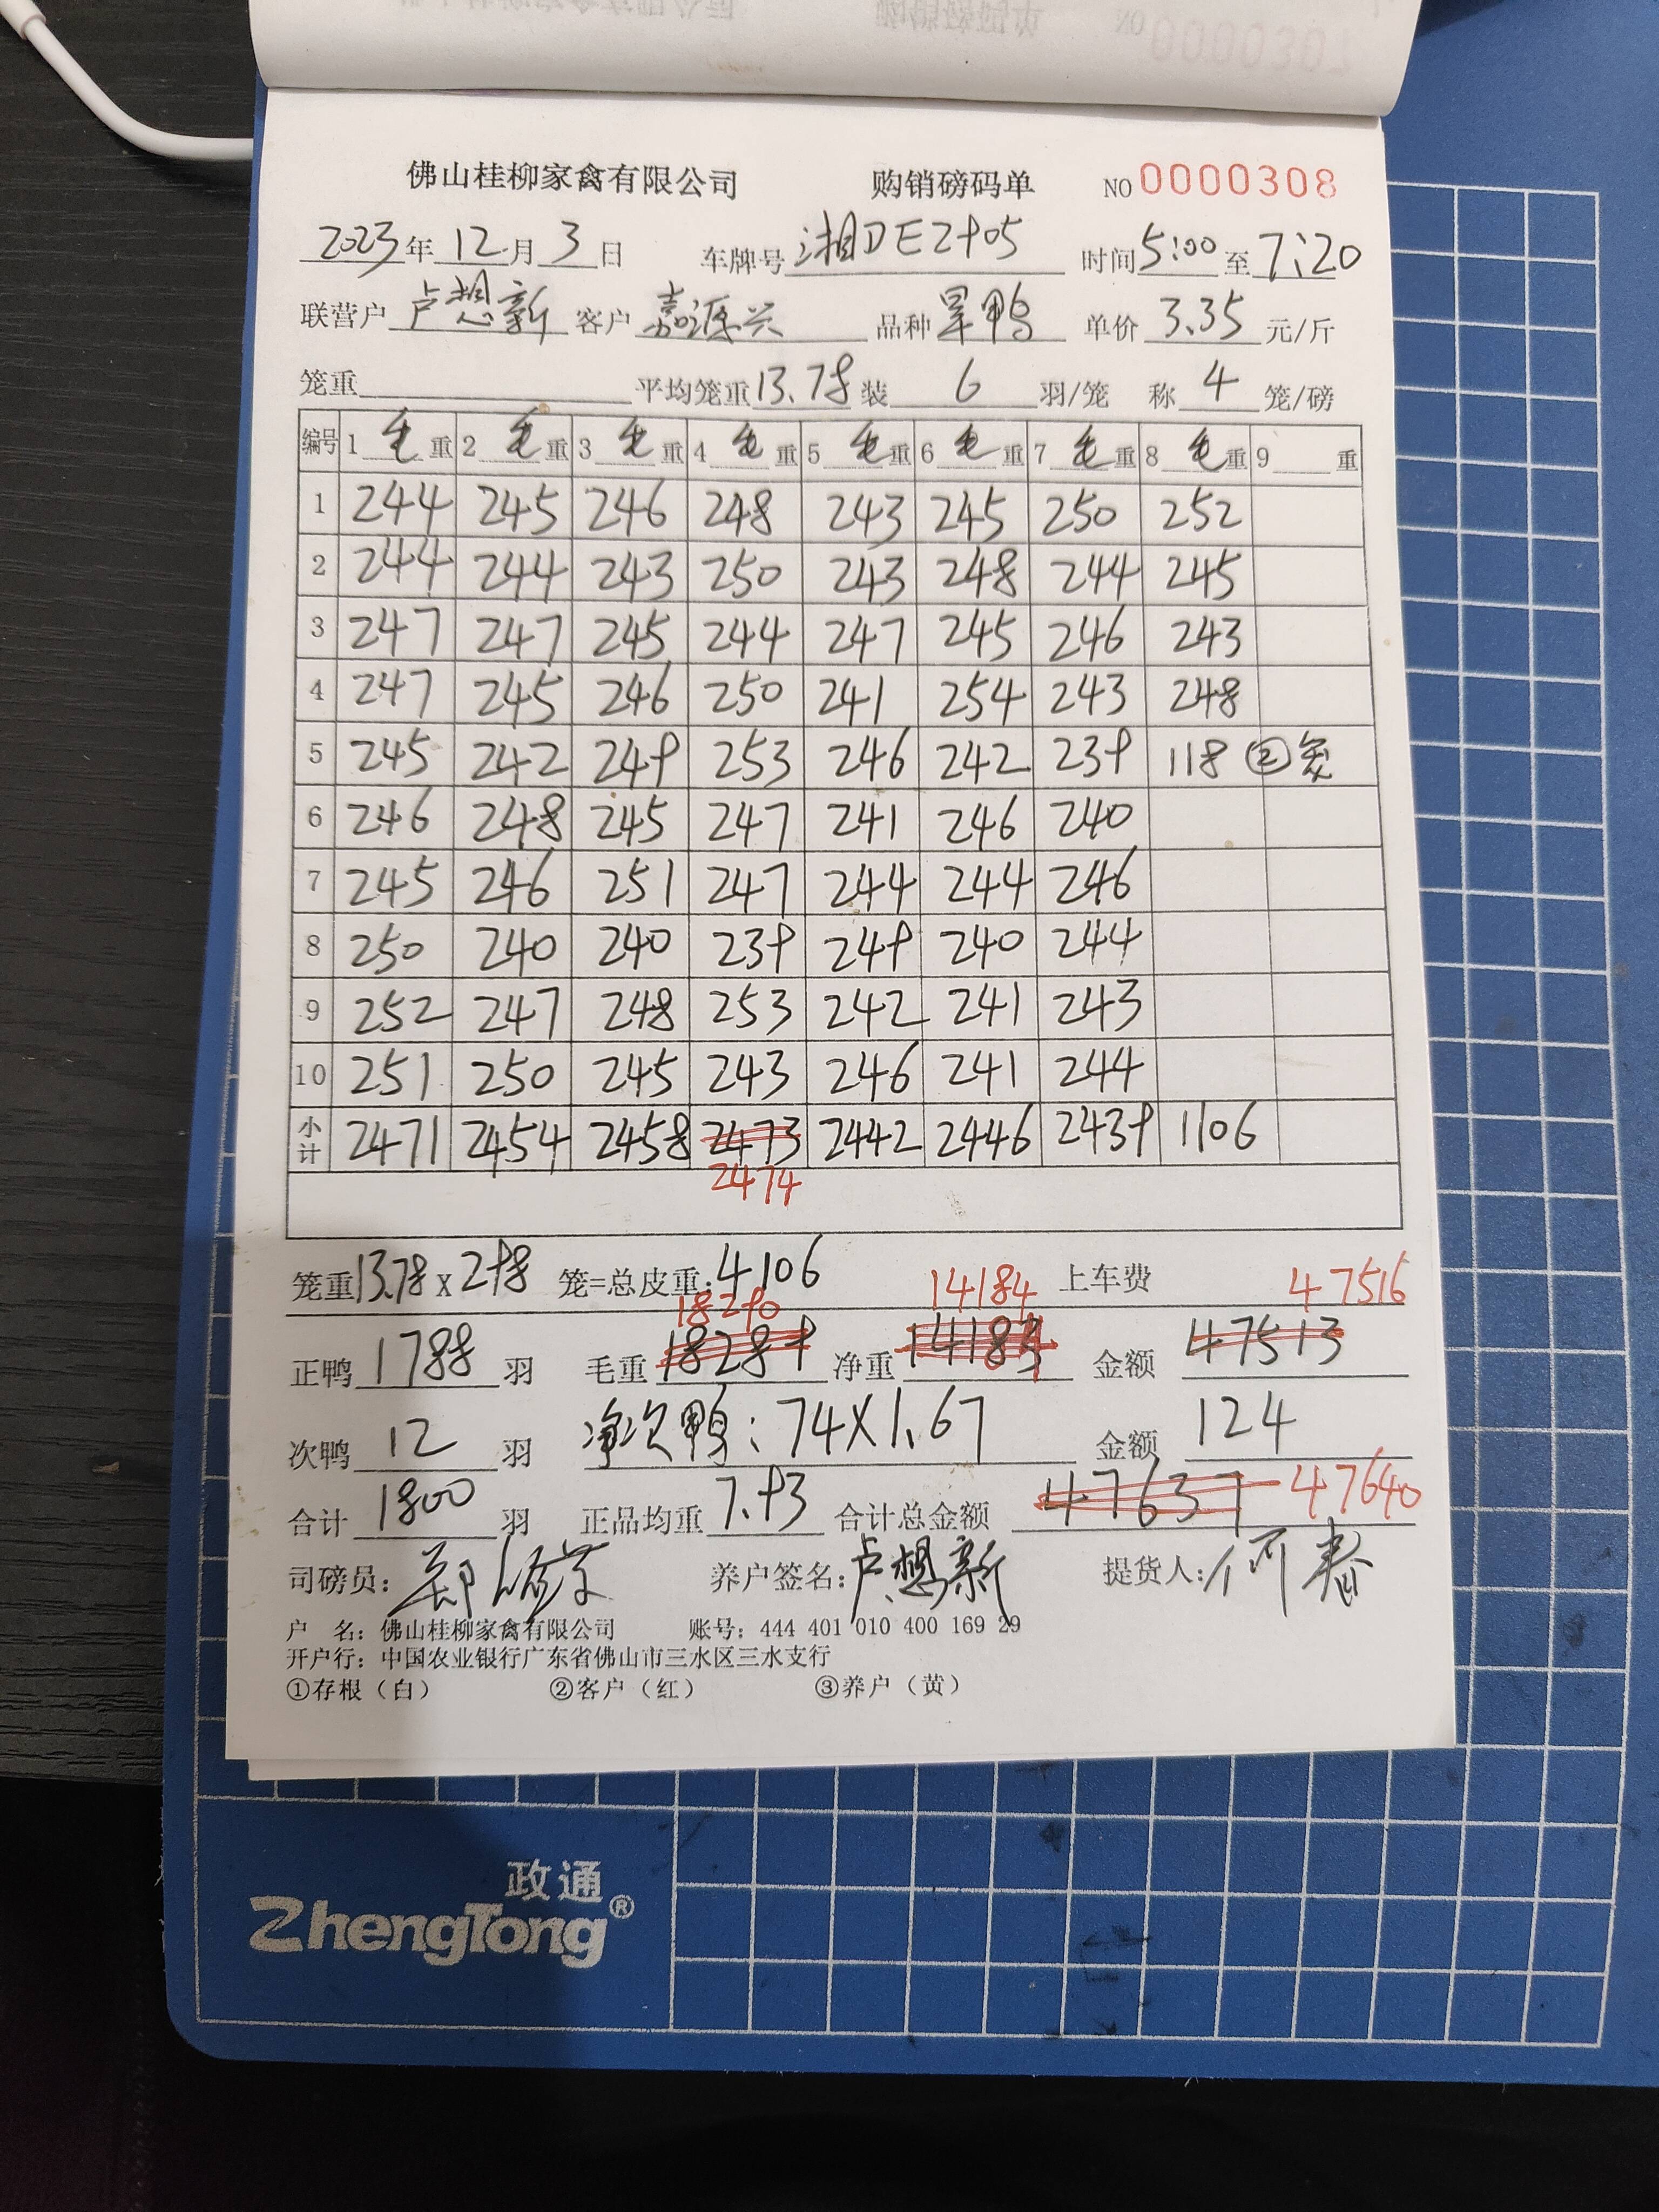 佛山桂柳家禽有限公司 购销磅码单 NO 0000308
2023年12月3日 车牌号 湘DE2905 时间5:00至7:20
联营户 卢想新 客户 嘉源兴 品种 旱鸭 单价 3.35 元/斤
笼重 平均笼重 13.78 装 6 羽/笼 称 4 笼/磅
编号 1 毛重 2 毛重 3 毛重 4 毛重 5 毛重 6 毛重 7 毛重 8 毛重 9 重
1 244 245 246 248 243 245 250 252
2 244 244 243 250 243 248 244 245
3 247 247 245 244 247 245 246 243
4 247 245 246 250 241 254 243 248
5 245 242 249 253 246 242 239 118 ②笼
6 246 248 245 247 241 246 240
7 245 246 251 247 244 244 246
8 250 240 240 239 249 240 244
9 252 247 248 253 242 241 243
10 251 250 245 243 246 241 244
小计 2471 2454 2458 2473 2442 2446 2439 1106
2474
笼重 13.78 x 298 笼=总皮重: 4106 上车费
18290 14184 47516
正鸭 1788 羽 毛重 18289 净重 14183 金额 47513
次鸭 12 羽 净次鸭: 74X1.67 金额 124
合计 1800 羽 正品均重 7.93 合计总金额 47637 47640
司磅员: 养户签名: 卢想新 提货人: 何春
户 名: 佛山桂柳家禽有限公司 账号: 444 401 010 400 169 29
开户行: 中国农业银行广东省佛山市三水区三水支行
①存根（白） ②客户（红） ③养户（黄）
政通
ZhengTong®